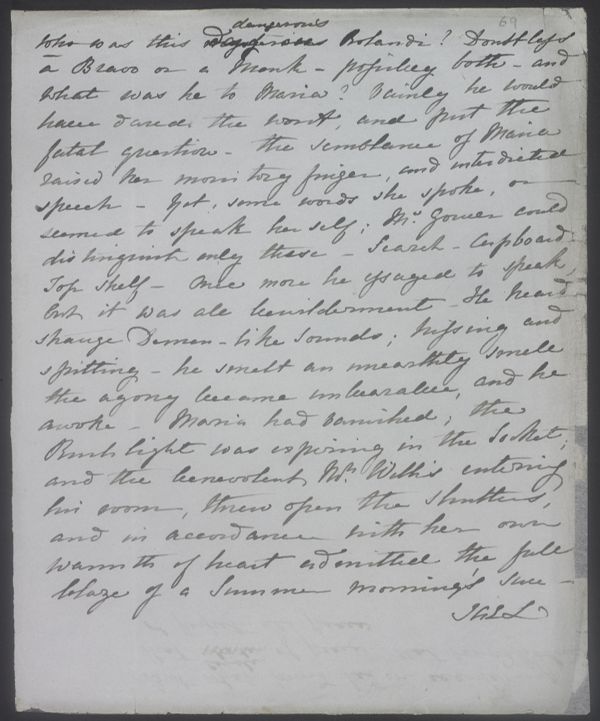 69
dangerous
Who was this Rolandi? Doubtless
a Bravo or a Monk - possibly both - and
what was he to Maria? Vainly he would
have dared the worst, and put the
fatal question - the semblance of Maria
raised her monitory finger, and interdicted
speech - Yet, some words she spoke, or
seemed to speak herself; Mr. Gower could
distinguish only these - Search - Cupboard -
Top Shelf - Once more he essayed to speak,
but it was all bewilderment - He heard
strange Demon-like sounds; hissing and
spitting - he smelt an unearthly smell
the agony became unbearable, and he
awoke - Maria had vanished; the
Rushlight was expiring in the Socket;
and the benevolent Mrs. Wallis entering
his room, threw open the shutters,
and in accordance with her own
warmth of heart admitted the full
blaze of a Summer morning's sun -